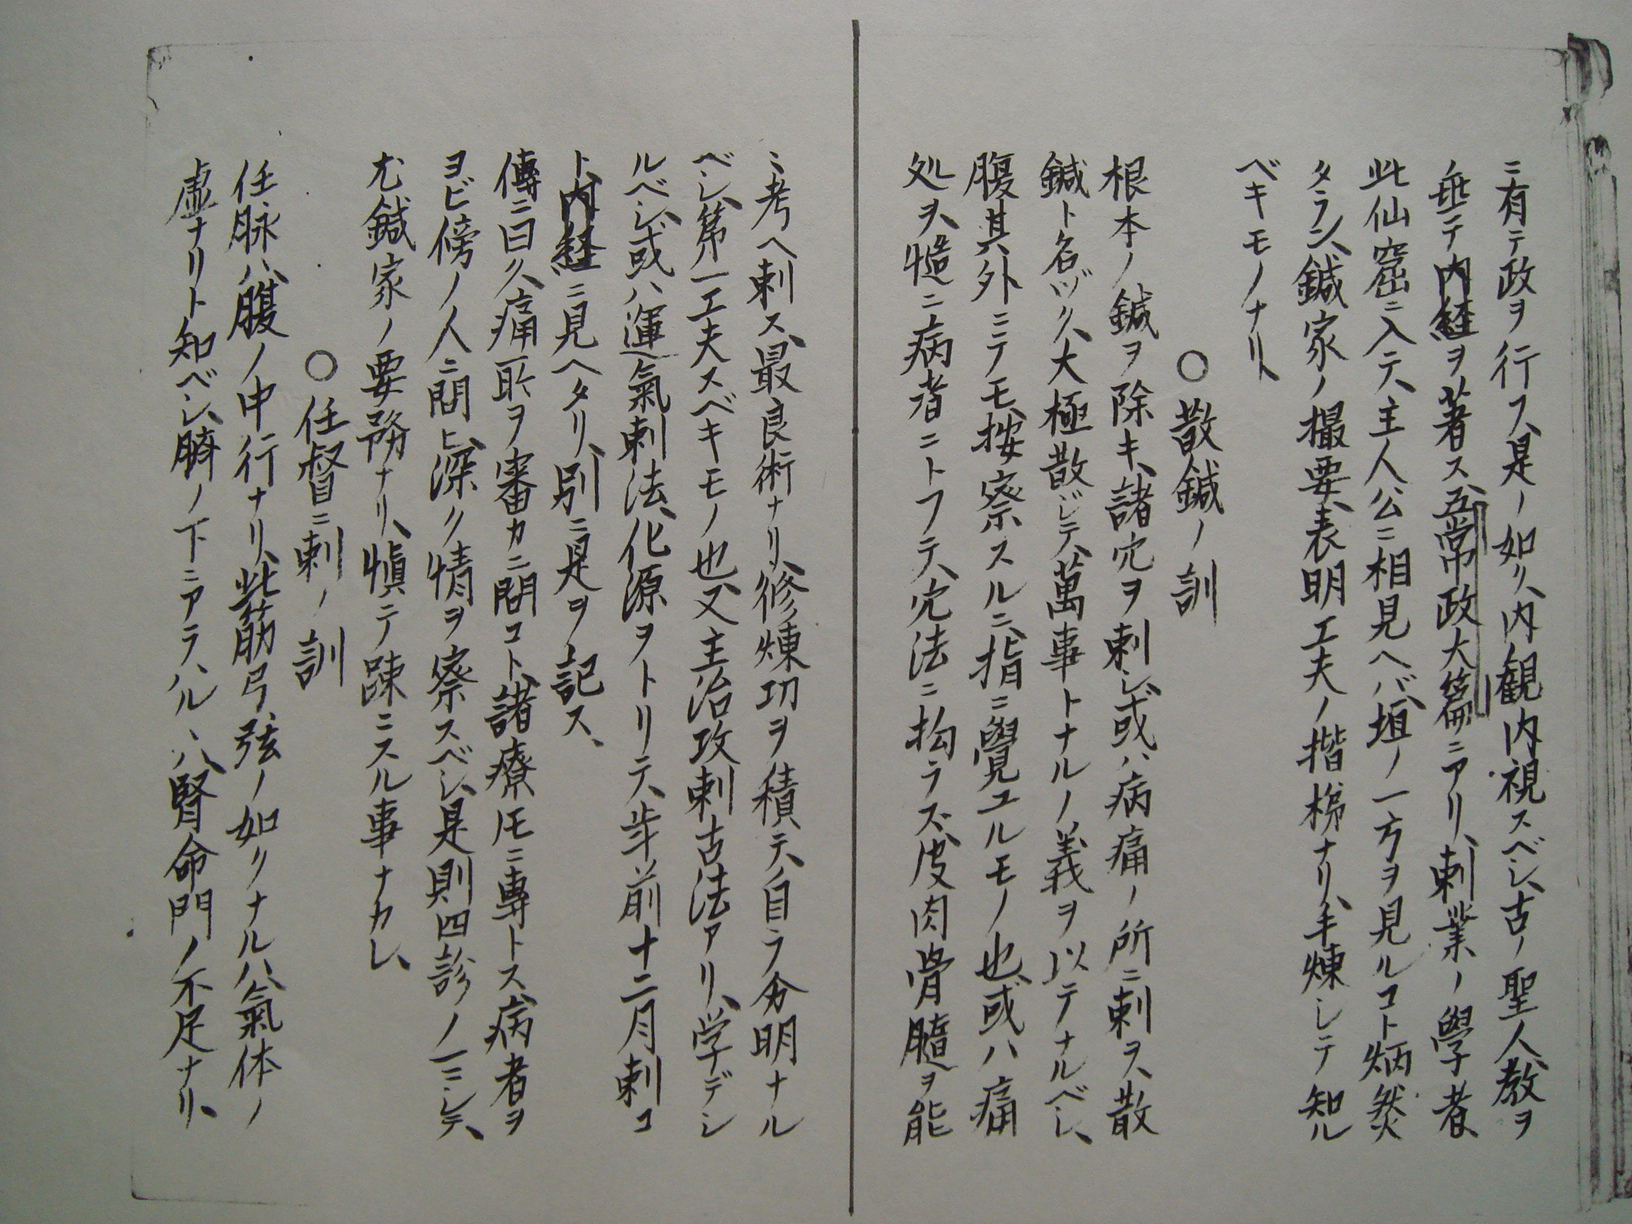 ニ有テ政ヲ行フ、是ノ如ク、内観内視スベシ、古ノ聖人教ヲ
垂テ内経ヲ著ス、五常政大篇ニアリ、刺業ノ學者
此仙窟ニ入テ、主人公ニ相見ヘバ、垣ノ一方ヲ見ルコト炳然
タラン、鍼家ノ撮要、表明工夫ノ揩梯ナリ、手煉シテ知ル
ベキモノナリ、
○散鍼ノ訓
根本ノ鍼ヲ除キ、諸穴ヲ刺シ、或ハ病痛ノ所ニ刺ヲ、散
鍼ト名ヅク、大極散ジテ、萬事トナルノ義ヲ以テナルベシ、
腹其外ニテモ、按察スルニ、指ニ覺ユルモノ也、或ハ痛
処ヲ、慥ニ病者ニトフテ、穴法ニ拘ラズ、皮肉骨髓ヲ能
ミ考ヘ刺ス、最良術ナリ、修煉功ヲ積テ、自ラ分明ナル
ベシ、第一工夫スベキモノ也、又主治攻刺古法アリ、学デシ
ルベシ、或ハ運氣刺法、化源ヲトリテ、年前十二月刺コ
ト、内経ニ見ヘタリ、別ニ是ヲ記ス、
傳ニ曰ク、痛所ヲ審カニ問コト、諸療ㇳモニ專トス、病者ヲ
ヨビ傍ノ人ニ問ヒ、深ク情ヲ察スベシ、是則四診ノ一ニシテ、
尤鍼家ノ要務ナリ、愼テ踈ニスル事ナカレ、
○任督ニ刺ノ訓
任脉ハ、腹ノ中行ナリ、此筋弓弦ノ如クナルハ、氣体ノ
虚ナリト知ベシ、臍ノ下ニアラハルヽハ、腎命門ノ不足ナリ、